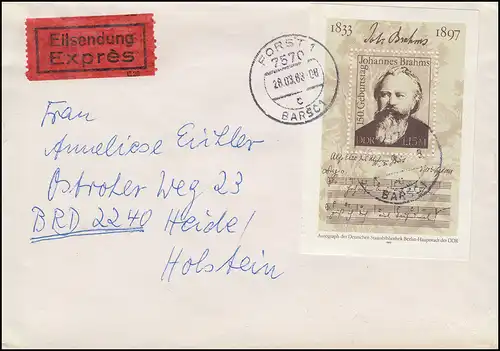 Eilsendung
Exprès
FORST 1
7570
28.03.83-08
c
BARSC1
1833 1897
Joh. Brahms
150. Geburtstag
Johannes Brahms
DDR 1,15 M
BARSC1
Autograph der Deutschen Staatsbibliothek Berlin-Hauptstadt der DDR
Frau
Anneliese Eichler
Ostroher Weg 23
BRD 2240 Heide/
Holstein